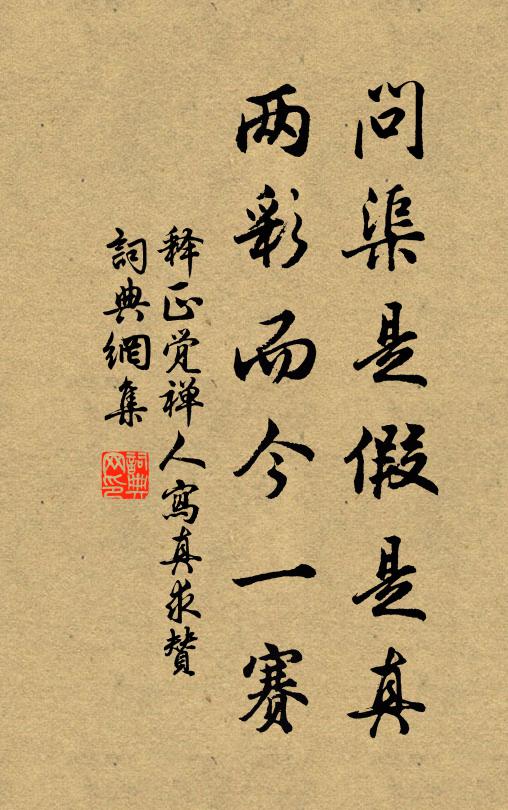 问渠是假是真
两彩而今一赛
释正觉禅人寫真求赞
詞典網集
詞典网印